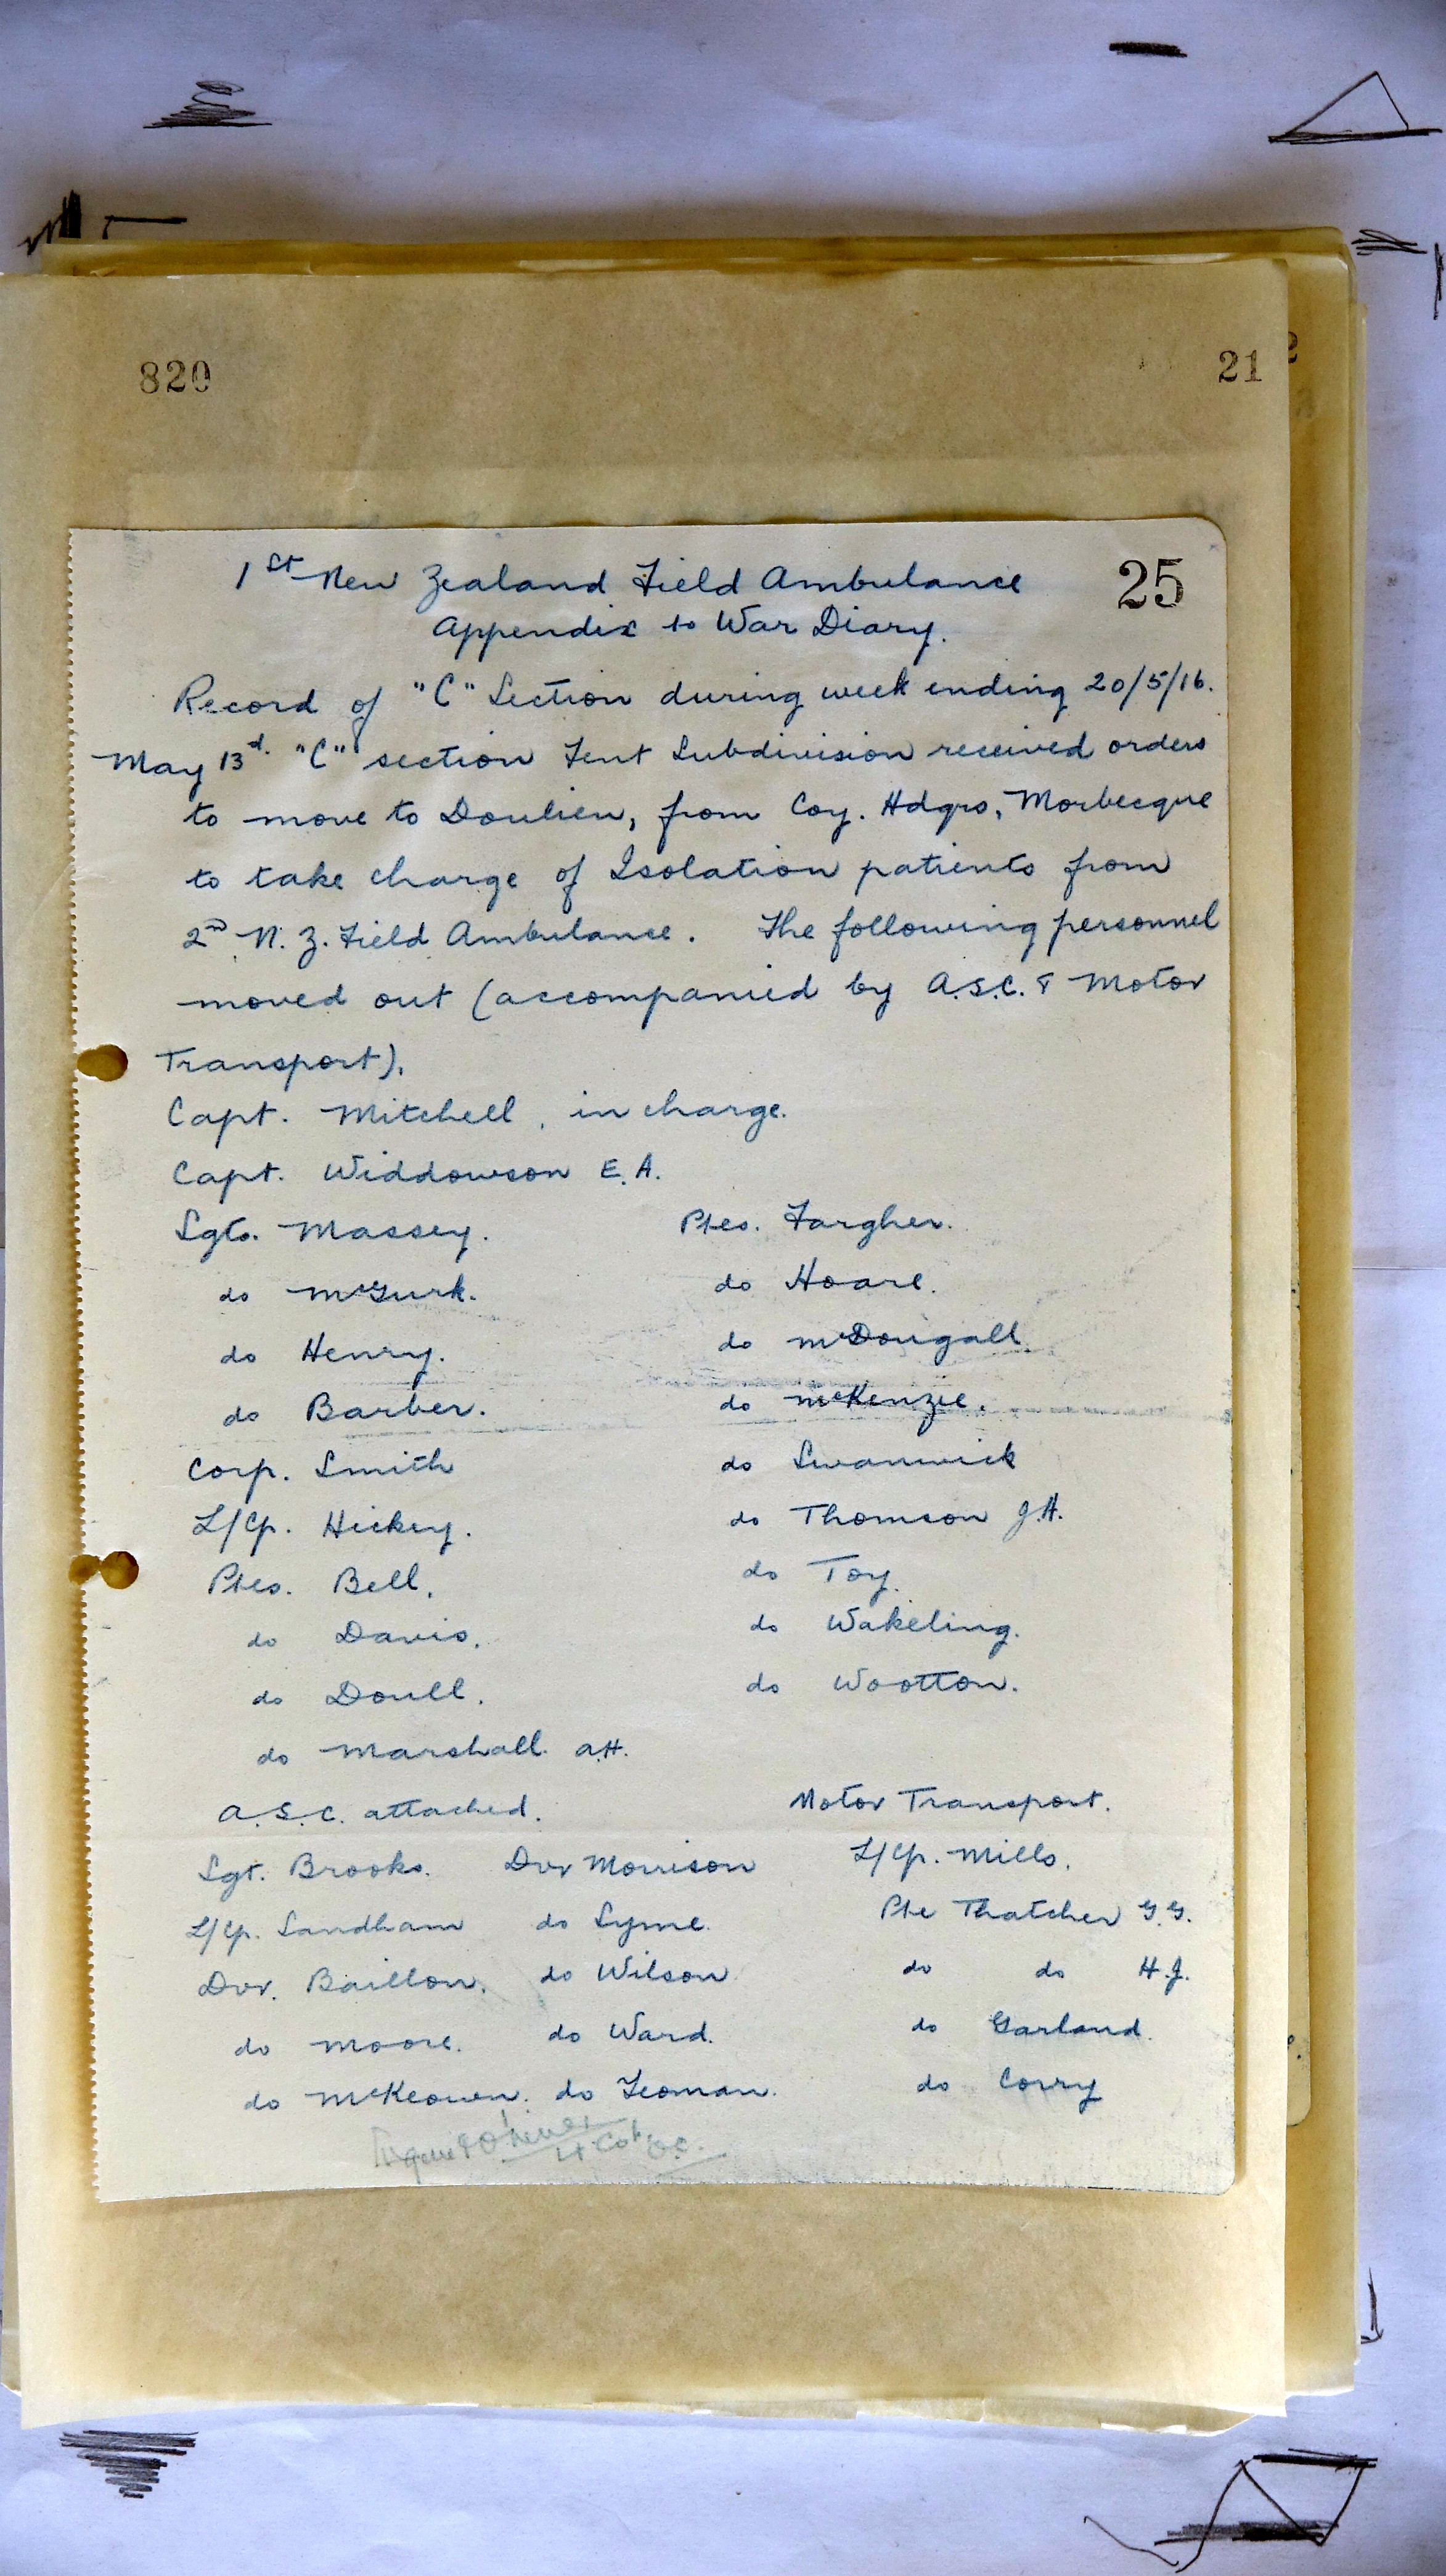 820
21
25
1st New Zealand Field Ambulance
Appendix to War Diary.
Record of "C" Section during week ending 20/5/16.
May 13d. "C" section Tent Subdivision received orders
to move to Doulieu, from Coy. Hdqrs, Morbecque
to take charge of Isolation patients from
2nd N. Z. Field Ambulance. The following personnel
moved out (accompanied by A.S.C. & Motor
Transport).
Capt. Mitchell, in charge.
Capt. Widdowson E. A.
Sgts. Massey. Ptes. Fargher.
do McGurk. do Hoare.
do Henry. do McDougall.
do Barber. do McKenzie.
Corp. Smith do Swanwick
L/Cp. Hickey. do Thomson J.H.
Ptes. Bell. do Toy.
do Davis. do Wakeling.
do Doull. do Wootton.
do Marshall. A.H.
A.S.C. attached. Motor Transport.
Sgt. Brooks. Dvr Morrison L/Cp. Mills.
L/Cp. Sandham do Syme. Pte Thatcher G.G.
Dvr. Baillon. do Wilson do do H.J.
do Moore. do Ward. do Garland.
do McKeown. do Yeoman. do Corry
Lt Col OC.